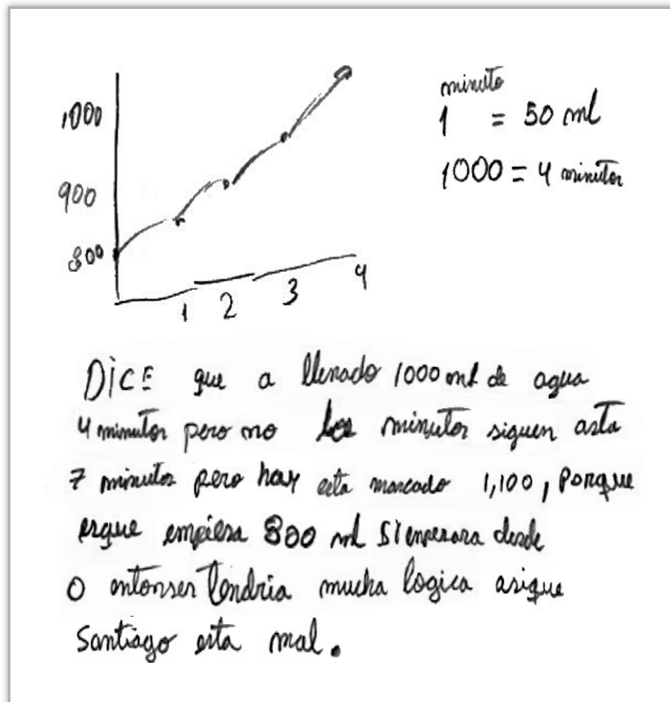 1000
900
800
1 2 3 4
minuto
1 = 50 ml
1000 = 4 minutos
DICE que a llenado 1000 ml de agua
4 minutos pero no los minutos siguen asta
7 minutos pero hay esta marcado 1,100, porque
esque empiesa 800 ml si empesara desde
0 entonses tendria mucha logica asique
Santiago esta mal.